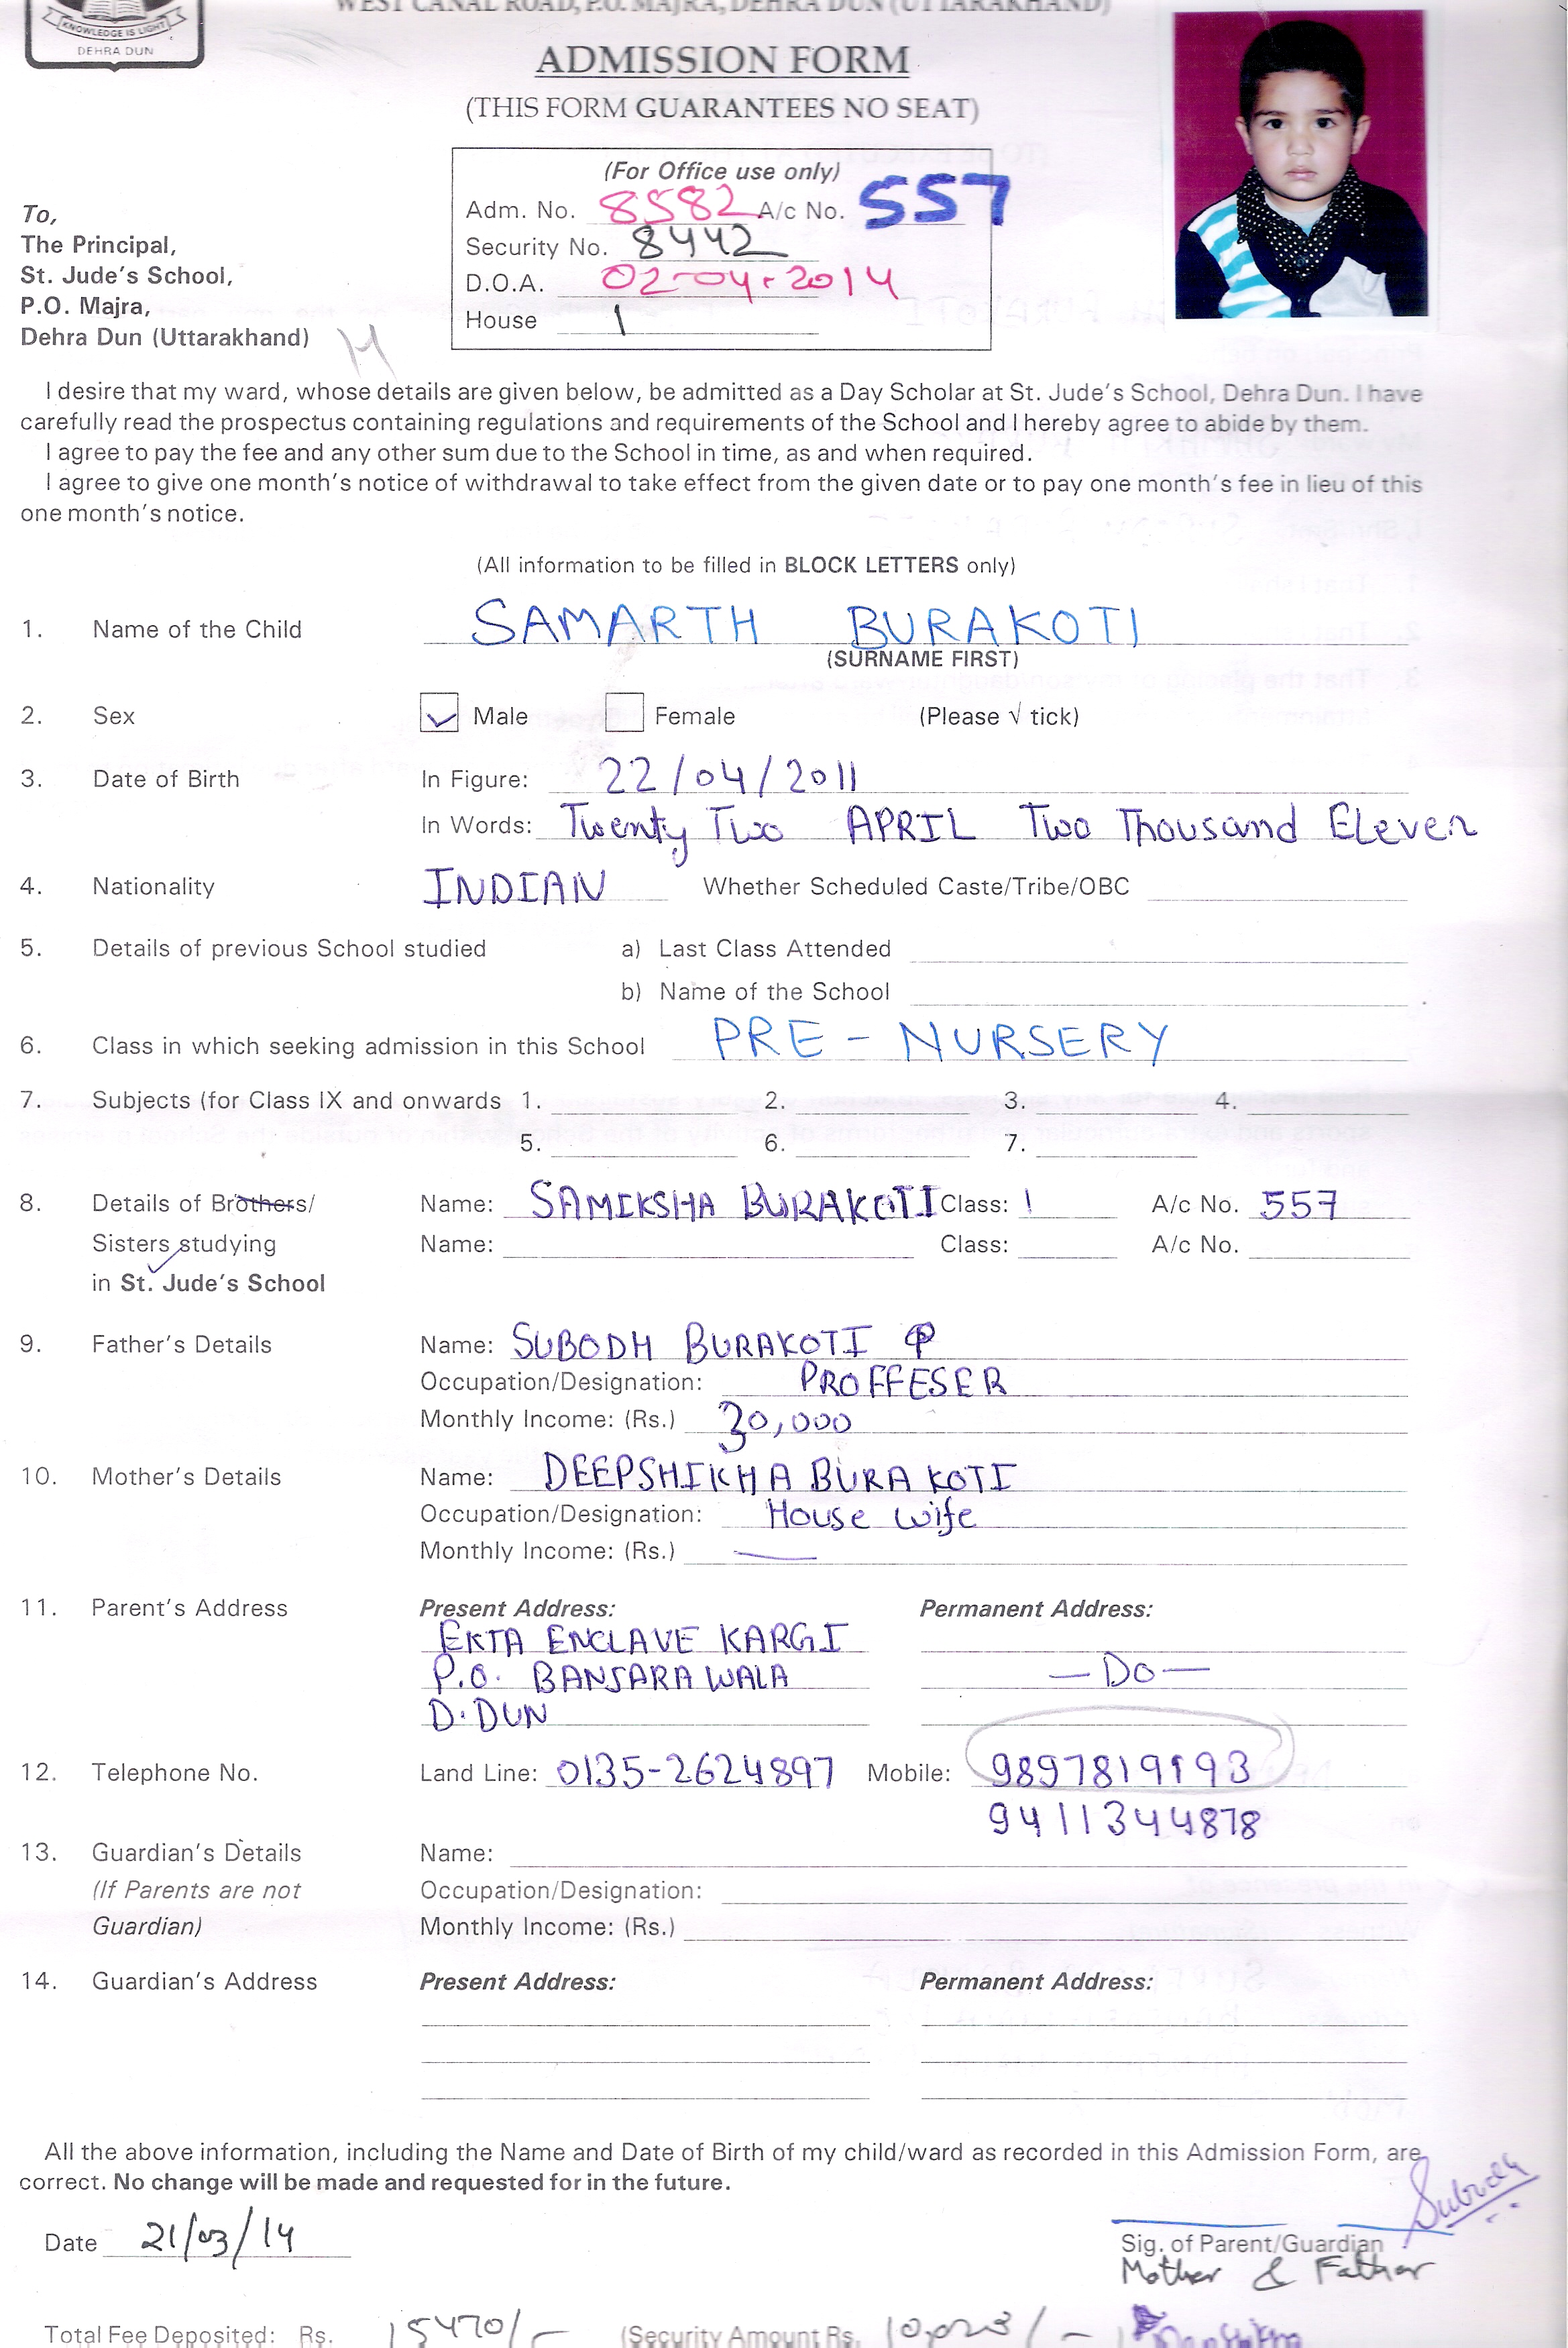 KNOWLEDGE IS LIGHT
DEHRA DUN
WEST CANAL ROAD, P.O. MAJRA, DEHRA DUN (UTTARAKHAND)
ADMISSION FORM
(THIS FORM GUARANTEES NO SEAT)
(For Office use only)
Adm. No. 8582 A/c No. 557
Security No. 8442
D.O.A. 02-04-2014
House 1
To,
The Principal,
St. Jude's School,
P.O. Majra,
Dehra Dun (Uttarakhand)
I desire that my ward, whose details are given below, be admitted as a Day Scholar at St. Jude's School, Dehra Dun. I have
carefully read the prospectus containing regulations and requirements of the School and I hereby agree to abide by them.
I agree to pay the fee and any other sum due to the School in time, as and when required.
I agree to give one month's notice of withdrawal to take effect from the given date or to pay one month's fee in lieu of this
one month's notice.
(All information to be filled in BLOCK LETTERS only)
1. Name of the Child SAMARTH BURAKOTI
(SURNAME FIRST)
2. Sex Male Female (Please √ tick)
3. Date of Birth In Figure: 22/04/2011
In Words: Twenty Two APRIL Two Thousand Eleven
4. Nationality INDIAN Whether Scheduled Caste/Tribe/OBC
5. Details of previous School studied a) Last Class Attended
b) Name of the School
6. Class in which seeking admission in this School PRE - NURSERY
7. Subjects (for Class IX and onwards 1. 2. 3. 4.
5. 6. 7.
8. Details of Brothers/ Name: SAMIKSHA BURAKOTI Class: 1 A/c No. 557
Sisters studying Name: Class: A/c No.
in St. Jude's School
9. Father's Details Name: SUBODH BURAKOTI
Occupation/Designation: PROFFESER
Monthly Income: (Rs.) 30,000
10. Mother's Details Name: DEEPSHIKHA BURAKOTI
Occupation/Designation: House wife
Monthly Income: (Rs.) —
11. Parent's Address Present Address: Permanent Address:
EKTA ENCLAVE KARGI
P.O. BANJARAWALA — Do —
D.DUN
12. Telephone No. Land Line: 0135-2624897 Mobile: 9897819193
9411344878
13. Guardian's Details Name:
(If Parents are not Occupation/Designation:
Guardian) Monthly Income: (Rs.)
14. Guardian's Address Present Address: Permanent Address:
All the above information, including the Name and Date of Birth of my child/ward as recorded in this Admission Form, are
correct. No change will be made and requested for in the future.
Subodh
Date 21/03/14
Sig. of Parent/Guardian
Mother & Father
Total Fee Deposited: Rs. 15470/- (Security Amount Rs.